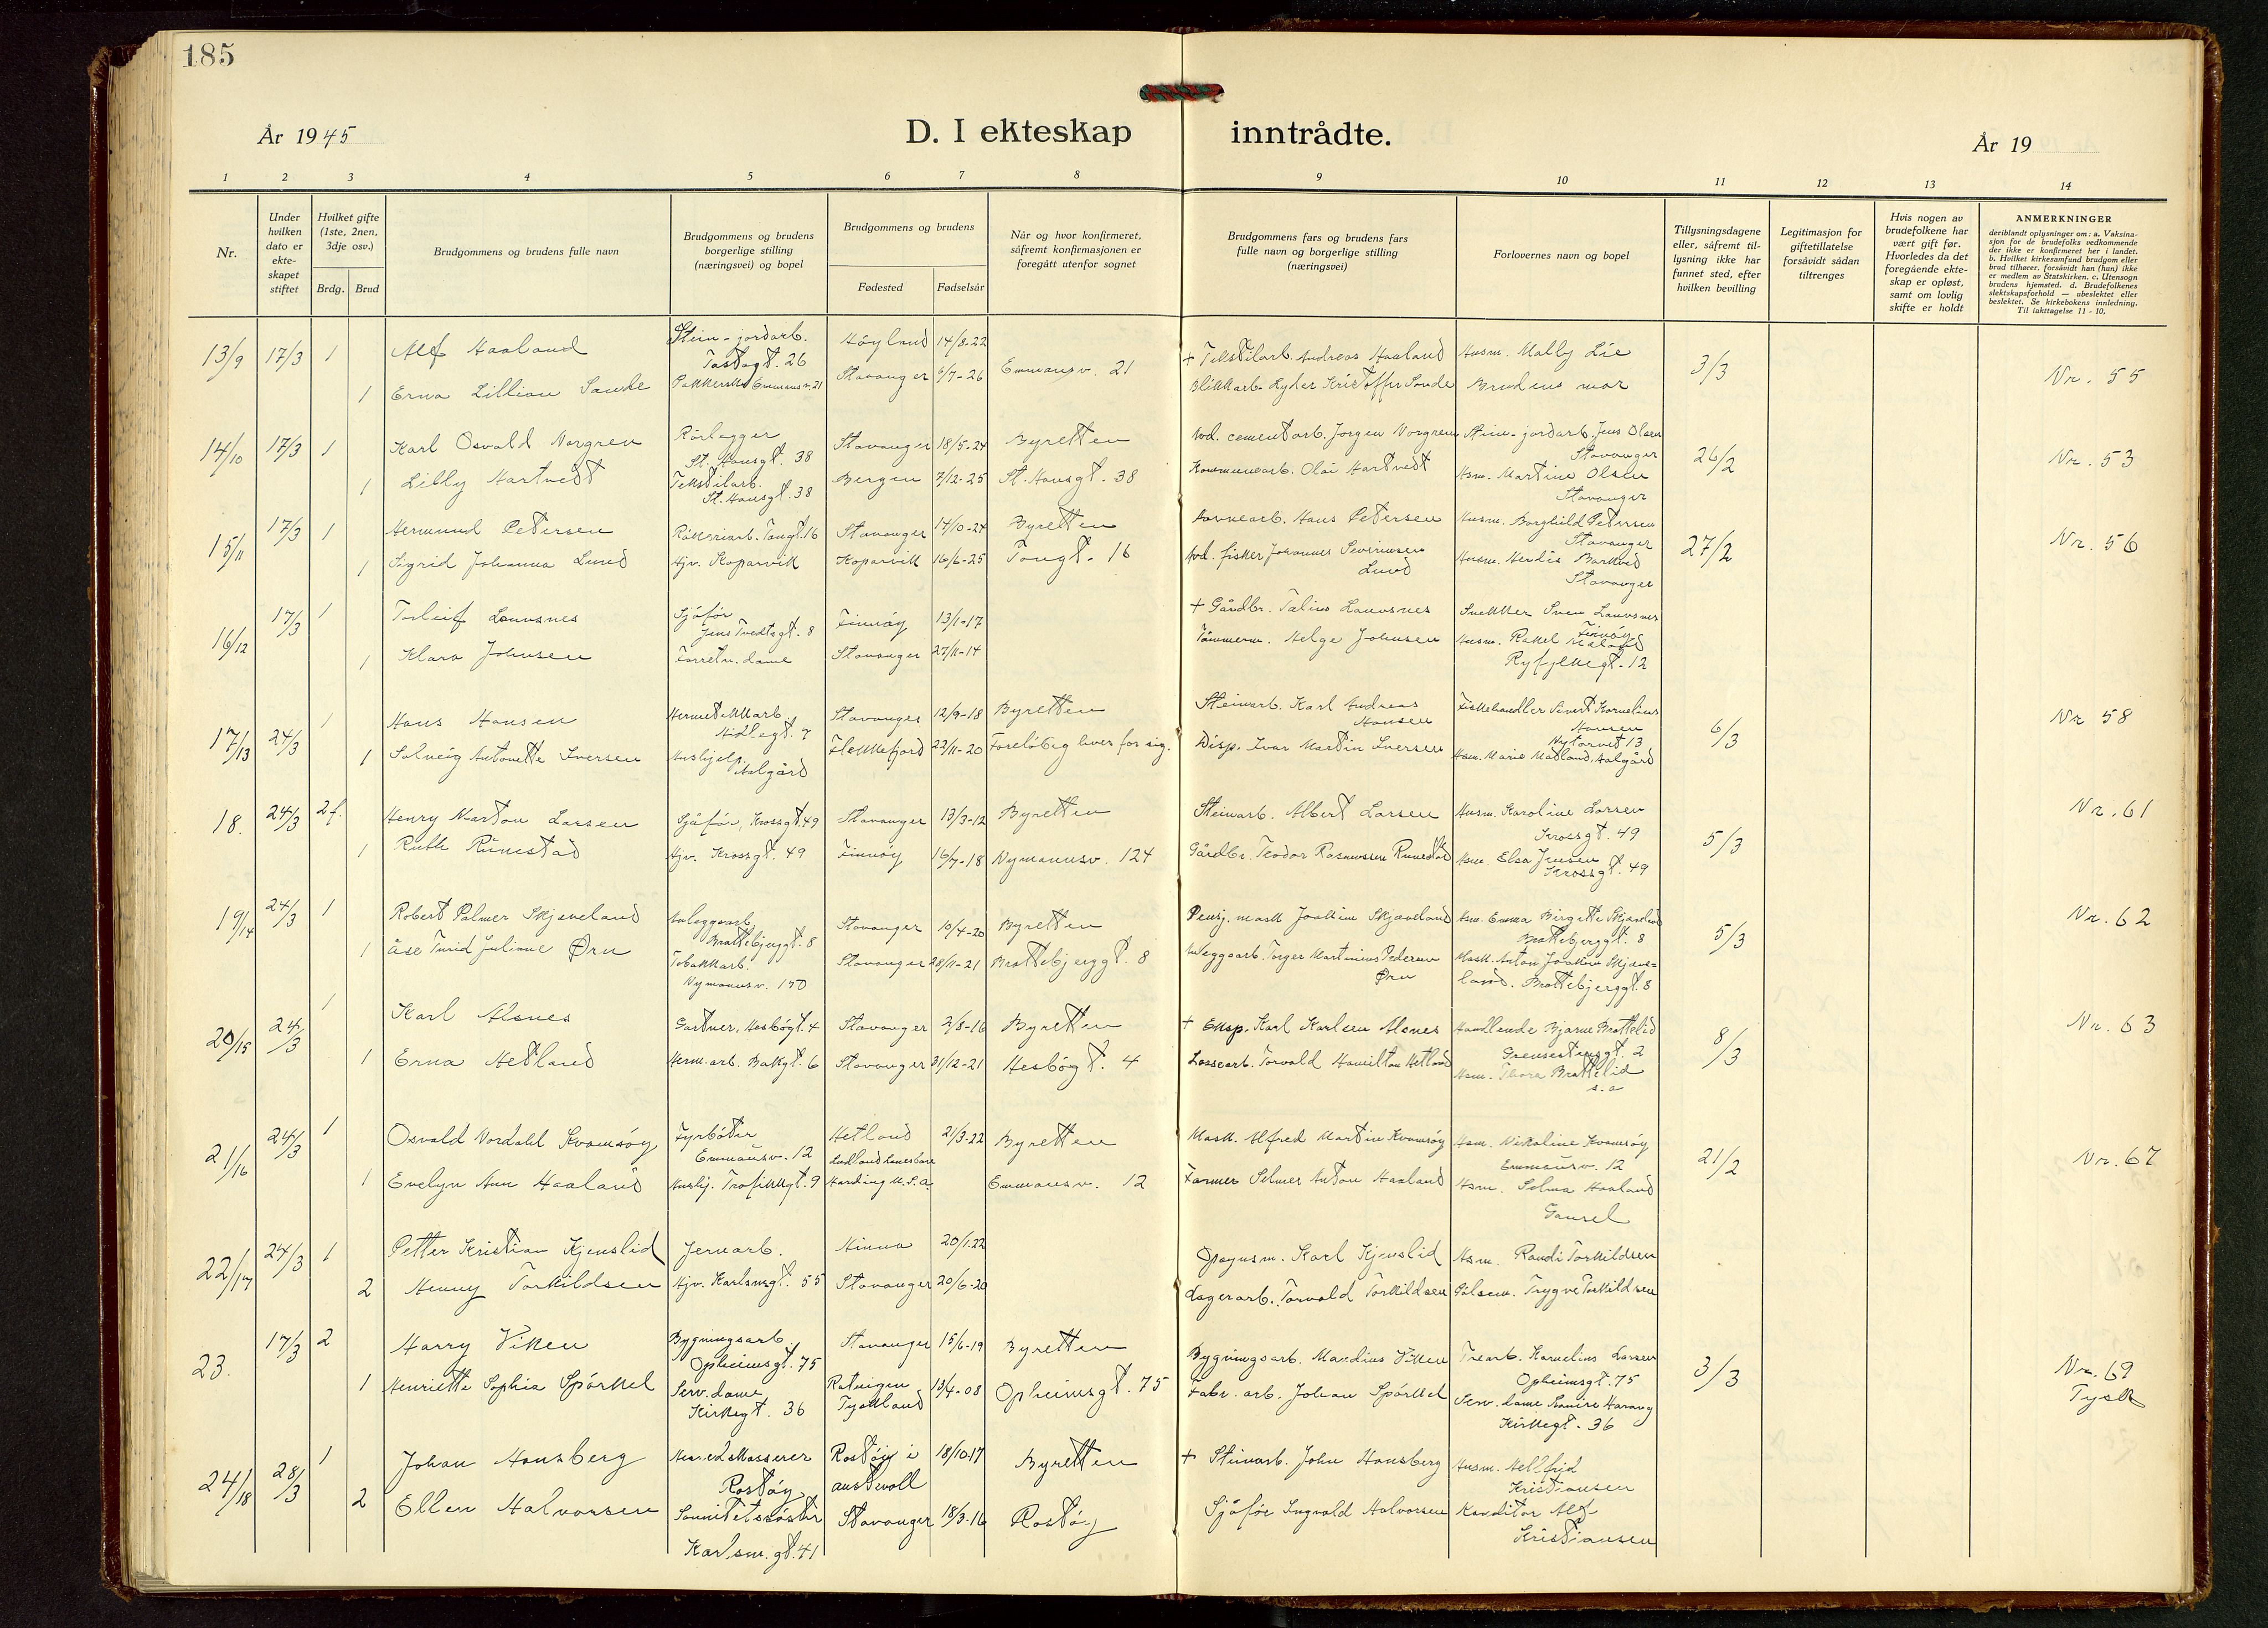 185
År 1945
D. I ekteskap inntrådte.
År 19
1 2 3 4 5 6 7 8 9 10 11 12 13 14
Nr.
Under hvilken dato er ekte-skapet stiftet
Hvilket gifte (1ste, 2nen, 3dje osv.)
Brdg. Brud
Brudgommens og brudens fulle navn
Brudgommens og brudens borgerlige stilling (næringsvei) og bopel
Brudgommens og brudens
Fødested Fødselsår
Når og hvor konfirmeret, såfremt konfirmasjonen er foregått utenfor sognet
Brudgommens fars og brudens fars fulle navn og borgerlige stilling (næringsvei)
Forlovernes navn og bopel
Tillysningsdagene eller, såfremt til-lysning ikke har funnet sted, efter hvilken bevilling
Legitimasjon for giftetillatelse forsåvidt sådan tiltrenges
Hvis nogen av brudefolkene har vært gift før. Hvorledes da det foregående ekte-skap er opløst, samt om lovlig skifte er holdt
ANMERKNINGER
deriblandt oplysninger om: a. Vaksina-sjon for de brudefolks vedkommende der ikke er konfirmeret her i landet. b. Hvilket kirkesamfund brudgom eller brud tilhører, forsåvidt han (hun) ikke er medlem av Statskirken. c. Utensogn brudens hjemsted. d. Brudefolkenes slektskapsforhold — ubeslektet eller beslektet. Se kirkebokens innledning. Til iakttagelse 11 - 10.
13/9 17/3 1 Alf Haaland Stein-jordarb. Tastagt. 26 Høyland 14/8-22 + Tekstilarb. Andreas Haaland Husm. Mally Lie 3/3 Nr. 55
1 Erna Lillian Sande Pakkerske Emmausv. 21 Stavanger 6/7-26 Emmausv. 21 Blikkarb. Ryder Kristoffer Sande Brudens mor
14/10 17/3 1 Karl Osvald Norgren Rørlegger St. Hansgt. 38 Stavanger 18/5-24 Byretten Avd. cementarb. Jørgen Norgren Stein-jordarb. Jens Olsen Stavanger 26/2 Nr. 53
1 Lilly Hartvedt Tekstilarb. St. Hansgt. 38 Bergen 7/12-25 St. Hansgt. 38 Kommunearb. Olai Hartvedt Hsm. Martine Olsen Stavanger
15/11 17/3 1 Hermund Petersen Tougt. 16 Stavanger 14/10-24 Byretten Havnearb. Hans Petersen Husm. Borghild Petersen Stavanger 27/2 Nr. 56
1 Sigrid Johanna Lund Hjv. Kopervik Kopervik 16/6-25 Tougt. 16 Avd. fisker Johannes Severinsen Lund Husm. Herdis Barkved Stavanger
16/12 17/3 1 Torleif Lauvsnes Sjåfør Jens Tvedtsgt. 8 Finnøy 13/1-17 + Gårdbr. Tølius Lauvsnes Snekker Sven Lauvsnes Finnøy
1 Klara Johnsen Forretn. dame Stavanger 27/11-14 Tømmerm. Helge Johnsen Husm. Rakel Ryfylkegt. 12
17/13 24/3 1 Hans Hansen Hermetikkarb. Hidlegt. 7 Stavanger 12/9-18 Byretten Steinarb. Karl Andreas Hansen Fiskehandler Sivert Kornelius Hansen Nytorvet 13 6/3 Nr 58
1 Solveig Antonette Iversen Hushjelp Aalgård Flekkefjord 22/11-20 Foreløbig hver for sig. Disp. Ivar Martin Iversen Hsm. Marie Madland, Aalgård
18. 24/3 2 f. Henry Marton Larsen Sjåfør, Krossgt. 49 Stavanger 13/3-12 Byretten Steinarb. Albert Larsen Husm. Karoline Larsen Krossgt. 49 5/3 Nr. 61
1 Ruth Runestad Hjv. Krossgt. 49 Finnøy 16/7-18 Nymansv. 124 Gårdbr. Teodor Rasmussen Runestad Hsm. Elsa Jensen Krossgt. 49
19/14 24/3 1 Robert Palmer Skjæveland Anleggsarb. Brattebjerggt. 8 Stavanger 10/4-20 Byretten Pensj. mask Joakim Skjæveland Hsm. Emma Birgitte Skjæveland Brattebjerggt. 8 5/3 Nr. 62
1 Åse Turid Juliane Ørn Tobakkarb. Nymansv. 170 Stavanger 28/11-21 Brattebjerggt. 8 Anleggsarb. Torger Martinius Pedersen Ørn Mask. Anton Joakim Skjæve-land. Brattebjerggt. 8
20/15 24/3 1 Karl Alsnes Gartner, Hesbøgt. 4 Stavanger 2/8-16 Byretten + Eksp. Karl Karlsen Alsnes Handlende Bjarne Brattelid Grensesteingt. 2 8/3 Nr. 63
1 Erna Hetland Herm. arb. Bakgt. 6 Stavanger 31/12-21 Hesbøgt. 4 Lossearb. Torvald Hamilton Hetland Hsm. Thora Brattelid s. a
21/16 24/3 1 Osvald Nordahl Kvamsøy Fyrbøter Emmausv. 12 Hetland 21/3-22 Byretten Mask. Alfred Martin Kvamsøy Hsm. Nikoline Kvamsøy Emmausv. 12 21/2 Nr. 67
1 Evelyn Ann Haaland Hushj. Trafikkgt. 9 Harding U.S.A. Emmausv. 12 Farmer Selmer Anton Haaland Hsm. Selma Haaland Gausel
22/17 24/3 1 Petter Kristian Kjenslid Jernarb. Hinna 20/1-22 Opsynsm. Karl Kjenslid Hsm. Randi Torkildsen
2 Henny Torkildsen Hjv. Karlsmgt. 55 Stavanger 20/6-20 Lagerarb. Torvald Torkildsen Pølsem. Trygve Torkildsen
23. 17/3 2 Harry Viken Bygningsarb. Opheimsgt. 75 Stavanger 15/6-19 Byretten Bygningsarb. Mandius Viken Trearb. Kornelius Larsen Opheimsgt. 75 3/3 Nr. 69 Tysk
1 Henriette Sophia Spörkel Serv. dame Kirkegt. 36 Ratingen Tyskland 13/4-08 Opheimsgt. 75 Fabr. arb. Johan Spörkel Serv. dame Kirkegt. 36
24/18 28/3 1 Johan Hansberg Rostøy Rostøy i austevoll 18/10-17 Byretten + Steinarb. John Hansberg Husm. Hellfrid Kristiansen
2 Ellen Halvorsen Sanitetssøster Karlsm. gt. 41 Stavanger 18/3-16 Rostøy Sjåfør Ingvald Halvorsen Konditor Alf Kristiansen